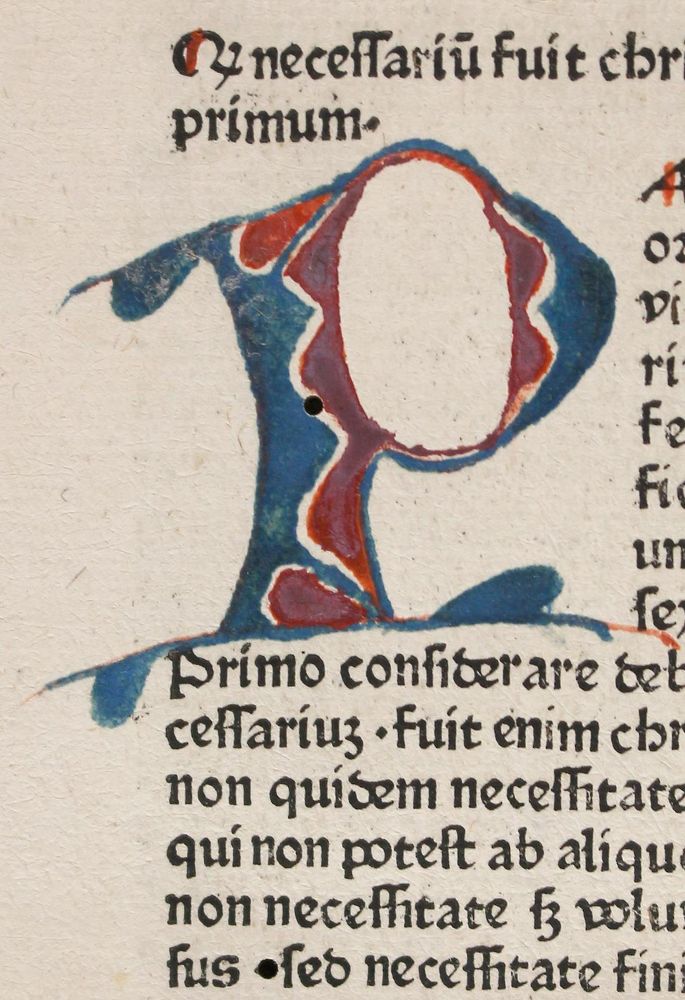 Qꝛ necessariū fuit chri
primum.
P
A
oꝛ
vi
ri
fe
fic
um
sex
Primo considerare deb
cessariuꝫ · fuit enim chr
non quidem necessitate
qui non potest ab aliqu
non necessitate sꝫ volun
sus · sed necessitate fini